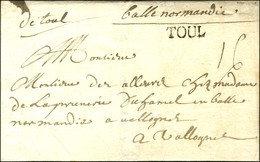 de toul
basse normandie
TOUL
A Monsieur
15
Monsieur des allours chez madame
de la prunerie Duhamel en basse
normandie a vallognes
a Vallognes